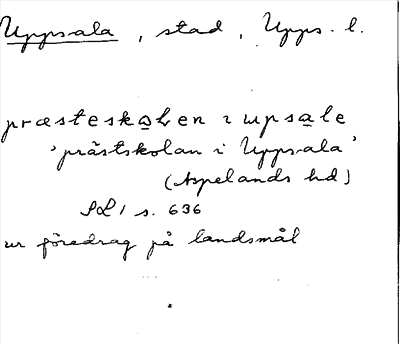 Uppsala, stad, Upps. l.
præsteskolen i upsale
'prästskolan i Uppsala'
(Aspelands hd)
SL 1 s. 636
ur föredrag på landsmål